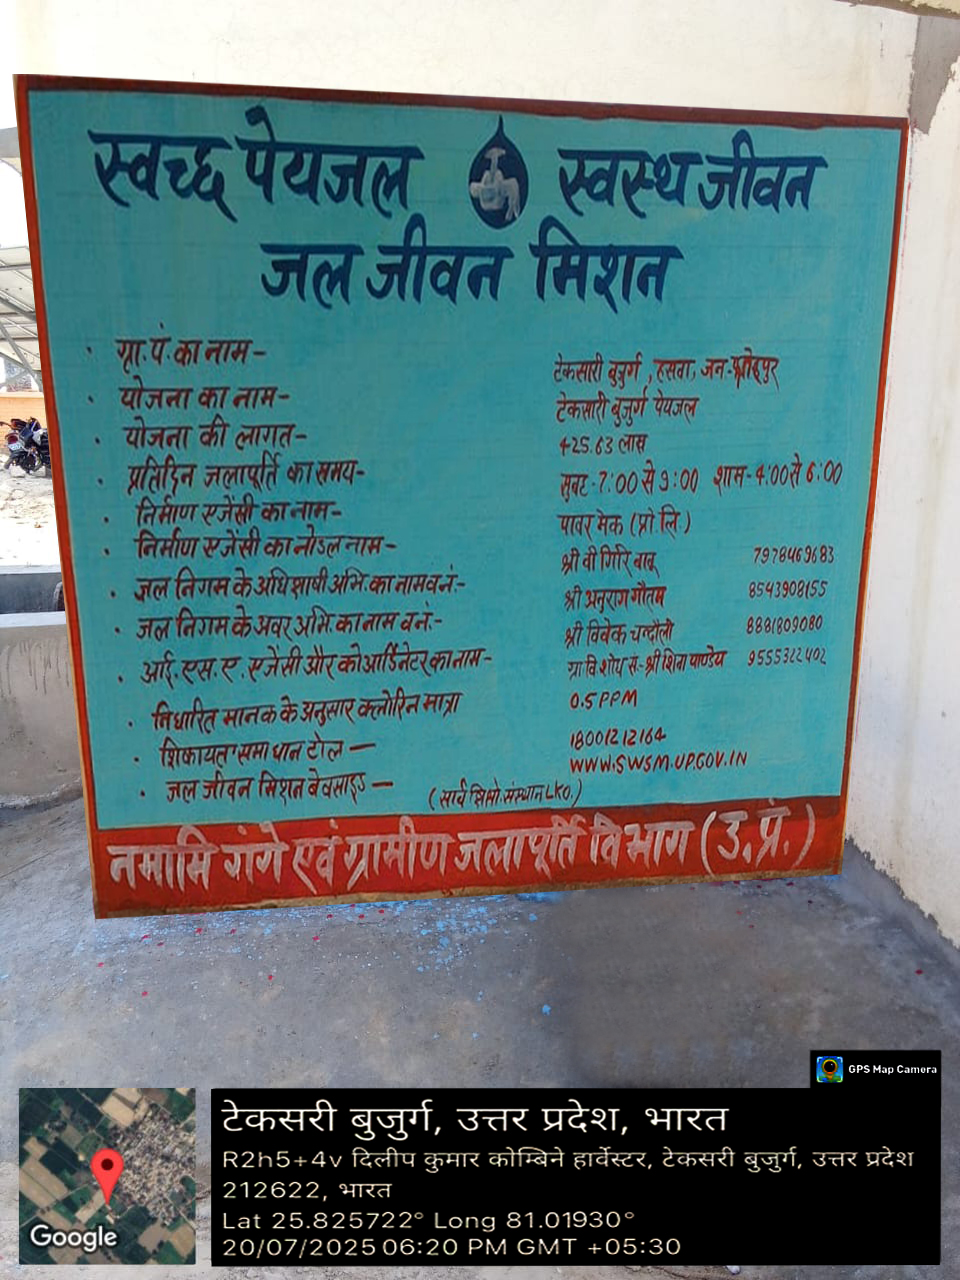 स्वच्छ पेयजल स्वस्थ जीवन
जल जीवन मिशन
ग्रा.पं. का नाम- टेकसारी बुजुर्ग, हसवा, जन-फतेहपुर
योजना का नाम- टेकसारी बुजुर्ग पेयजल
योजना की लागत- 425.63 लाख
प्रतिदिन जलापूर्ति का समय- सुबह-7:00 से 9:00 शाम-4:00 से 6:00
निर्माण एजेंसी का नाम- पावर मेक (प्रो.लि.)
निर्माण एजेंसी का नोडल नाम- श्री वी गिरि बाबू 7978469683
जल निगम के अधिशाषी अभि. का नाम व नं.- श्री अनुराग गौतम 8543908155
जल निगम के अवर अभि. का नाम व नं.- श्री विवेक चन्दौली 8881809080
आई.एस.ए. एजेंसी और कोआर्डिनेटर का नाम- ग्रा.वि.शोध सं.-श्री शिवा पाण्डेय 9555322402
निर्धारित मानक के अनुसार क्लोरिन मात्रा 0.5 PPM
शिकायत समाधान टोल — 18001212164
जल जीवन मिशन वेबसाइड — WWW.SWSM.UP.GOV.IN
नमामि गंगे एवं ग्रामीण जलापूर्ति विभाग (उ.प्रं.)
GPS Map Camera
टेकसरी बुजुर्ग, उत्तर प्रदेश, भारत
R2h5+4v दिलीप कुमार कोम्बिने हार्वेस्टर, टेकसरी बुजुर्ग, उत्तर प्रदेश
212622, भारत
Lat 25.825722° Long 81.01930°
20/07/2025 06:20 PM GMT +05:30
Google